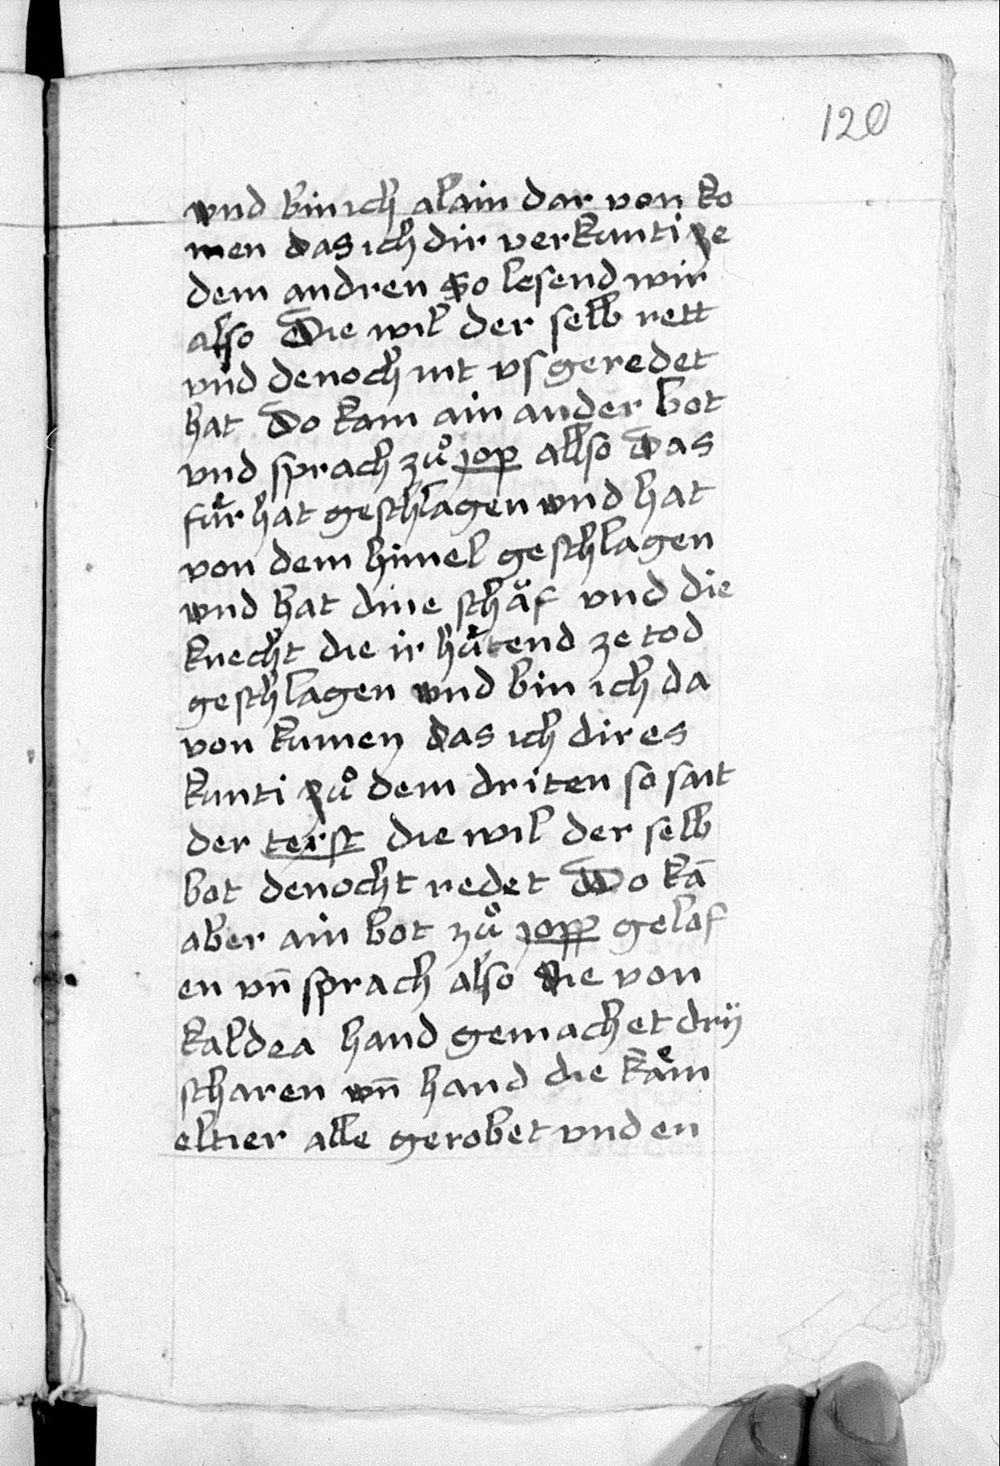 120
vnd bin ich alain dar von ko
men das ich dir verkunti ze
dem andren So lesend wir
also Die wil der selb rett
vnd denoch nit vs geredet
hat Do kam ain ander bot
vnd sprach zuͦ jop allso Das
fuͤr hat geschlagen vnd hat
von dem himel geschlagen
vnd hat dine schäf vnd die
knecht die ir huͤtend ze tod
geschlagen vnd bin ich da
von kumen das ich dir es
kunti zuͦ dem driten so sait
der terst die wil der selb
bot denocht redet Do kā
aber ain bot zuͦ jopp gelof
en vn̄ sprach also die von
kaldea hand gemachet drÿ
scharen vn̄ hand die kaͤm
eltier alle gerobet vnd en